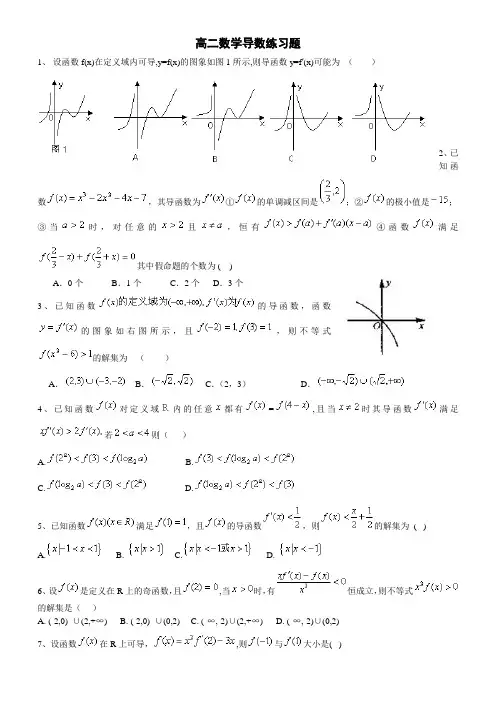 高二数学导数练习题
1、 设函数 f(x)在定义域内可导,y=f(x)的图象如图 1 所示,则导函数 y=f'(x)可能为 （ ）
y 0 x 图1
y 0 x A
y 0 x B
y 0 x C
y 0 x D
2、已知函
数 f(x)=x³-2x²-4x-7，其导函数为 f'(x)①f(x)的单调减区间是(2/3,2)；②f(x)的极小值是-15；
③当 a>2 时，对任意的 x>2 且 x≠a，恒有 f(x)>f(a)+f'(a)(x-a)④函数 f(x) 满足
f(2/3-x)+f(2/3+x)=0 其中假命题的个数为 ( )
A．0 个 B．1 个 C．2 个 D．3 个
3、已知函数 f(x)的定义域为(-∞,+∞), f'(x)为f(x) 的导函数，函数
y=f'(x) 的图象如右图所示，且 f(-2)=1, f(3)=1，则不等式
f(x²-6)>1 的解集为 （ ）
y O x
A．(2,3)∪(-3,-2) B．(-√2,√2) C．（2，3） D．(-∞,-√2)∪(√2,+∞)
4、已知函数 f(x) 对定义域 R 内的任意 x 都有 f(x)=f(4-x),且当 x≠2 时其导函数 f'(x) 满足
xf'(x)>2f'(x),若 2<a<4 则（ ）
A. f(2ᵃ)<f(3)<f(log₂a) B. f(3)<f(log₂a)<f(2ᵃ)
C. f(log₂a)<f(3)<f(2ᵃ) D. f(log₂a)<f(2ᵃ)<f(3)
5、已知函数 f(x)(x∈R) 满足 f(1)=1，且 f(x) 的导函数 f'(x)<1/2，则 f(x)<x/2+1/2 的解集为（ ）
A. {x|-1<x<1} B. {x|x>1} C. {x|x<-1或x>1} D. {x|x<-1}
6、设 f(x) 是定义在 R 上的奇函数,且 f(2)=0,当 x>0 时,有 (xf'(x)-f(x))/x²<0 恒成立,则不等式 x²f(x)>0
的解集是（ ）
A. (-2,0) ∪(2,+∞) B. (-2,0) ∪(0,2) C. (-∞,-2)∪(2,+∞) D. (-∞,-2)∪(0,2)
7、设函数 f(x) 在 R 上可导，f(x)=x²f'(2)-3x,则 f(-1) 与 f(1) 大小是( )